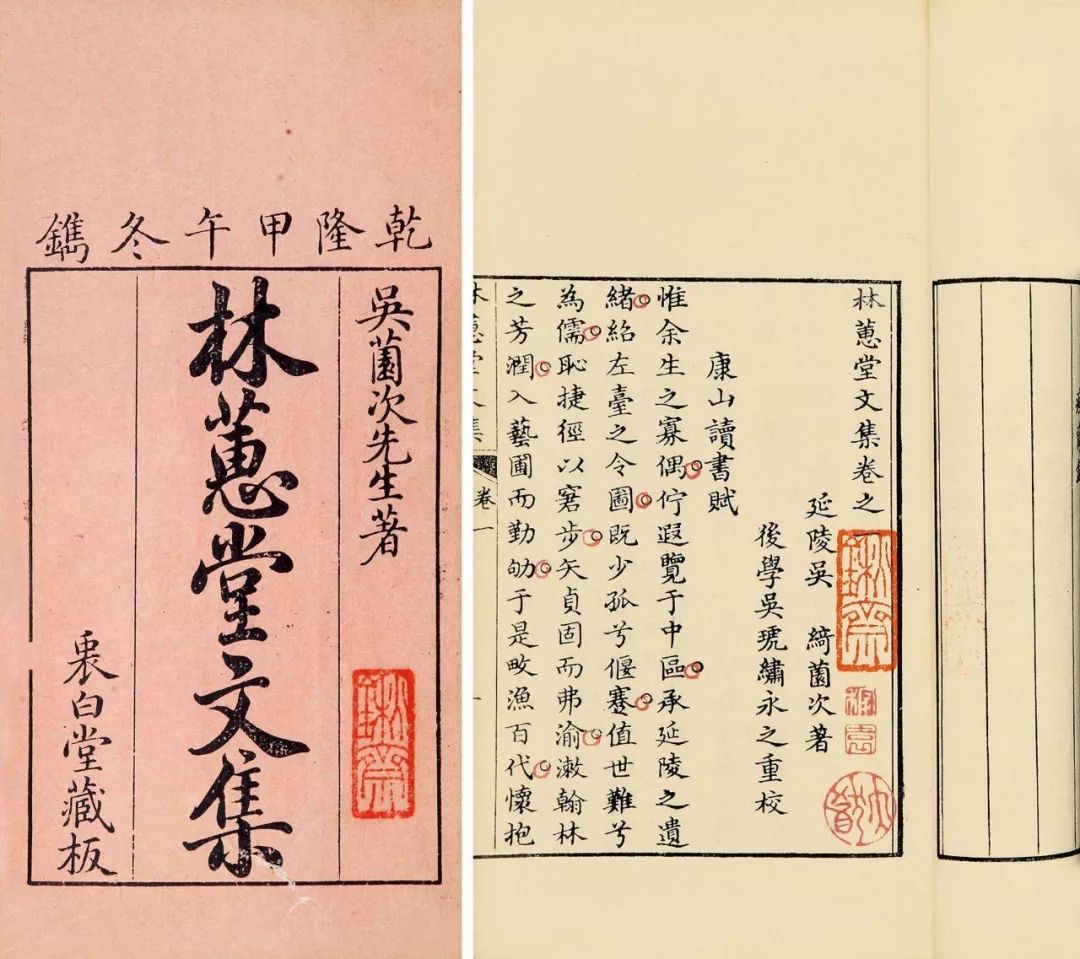 乾隆甲午冬鐫
吳薗次先生著
林蕙堂文集
衷白堂藏板
林蕙堂文集卷之一
延陵吳 綺薗次著
後學吳琥繡永之重校
康山讀書賦
惟余生之寡偶佇遐覽于中區承延陵之遺
緒紹左臺之令圖既少孤兮偃蹇值世難兮
為儒恥捷徑以窘步矢貞固而弗渝漱翰林
之芳潤入藝圃而勤劬于是畋漁百代懷抱
林蕙堂文集
卷一
一